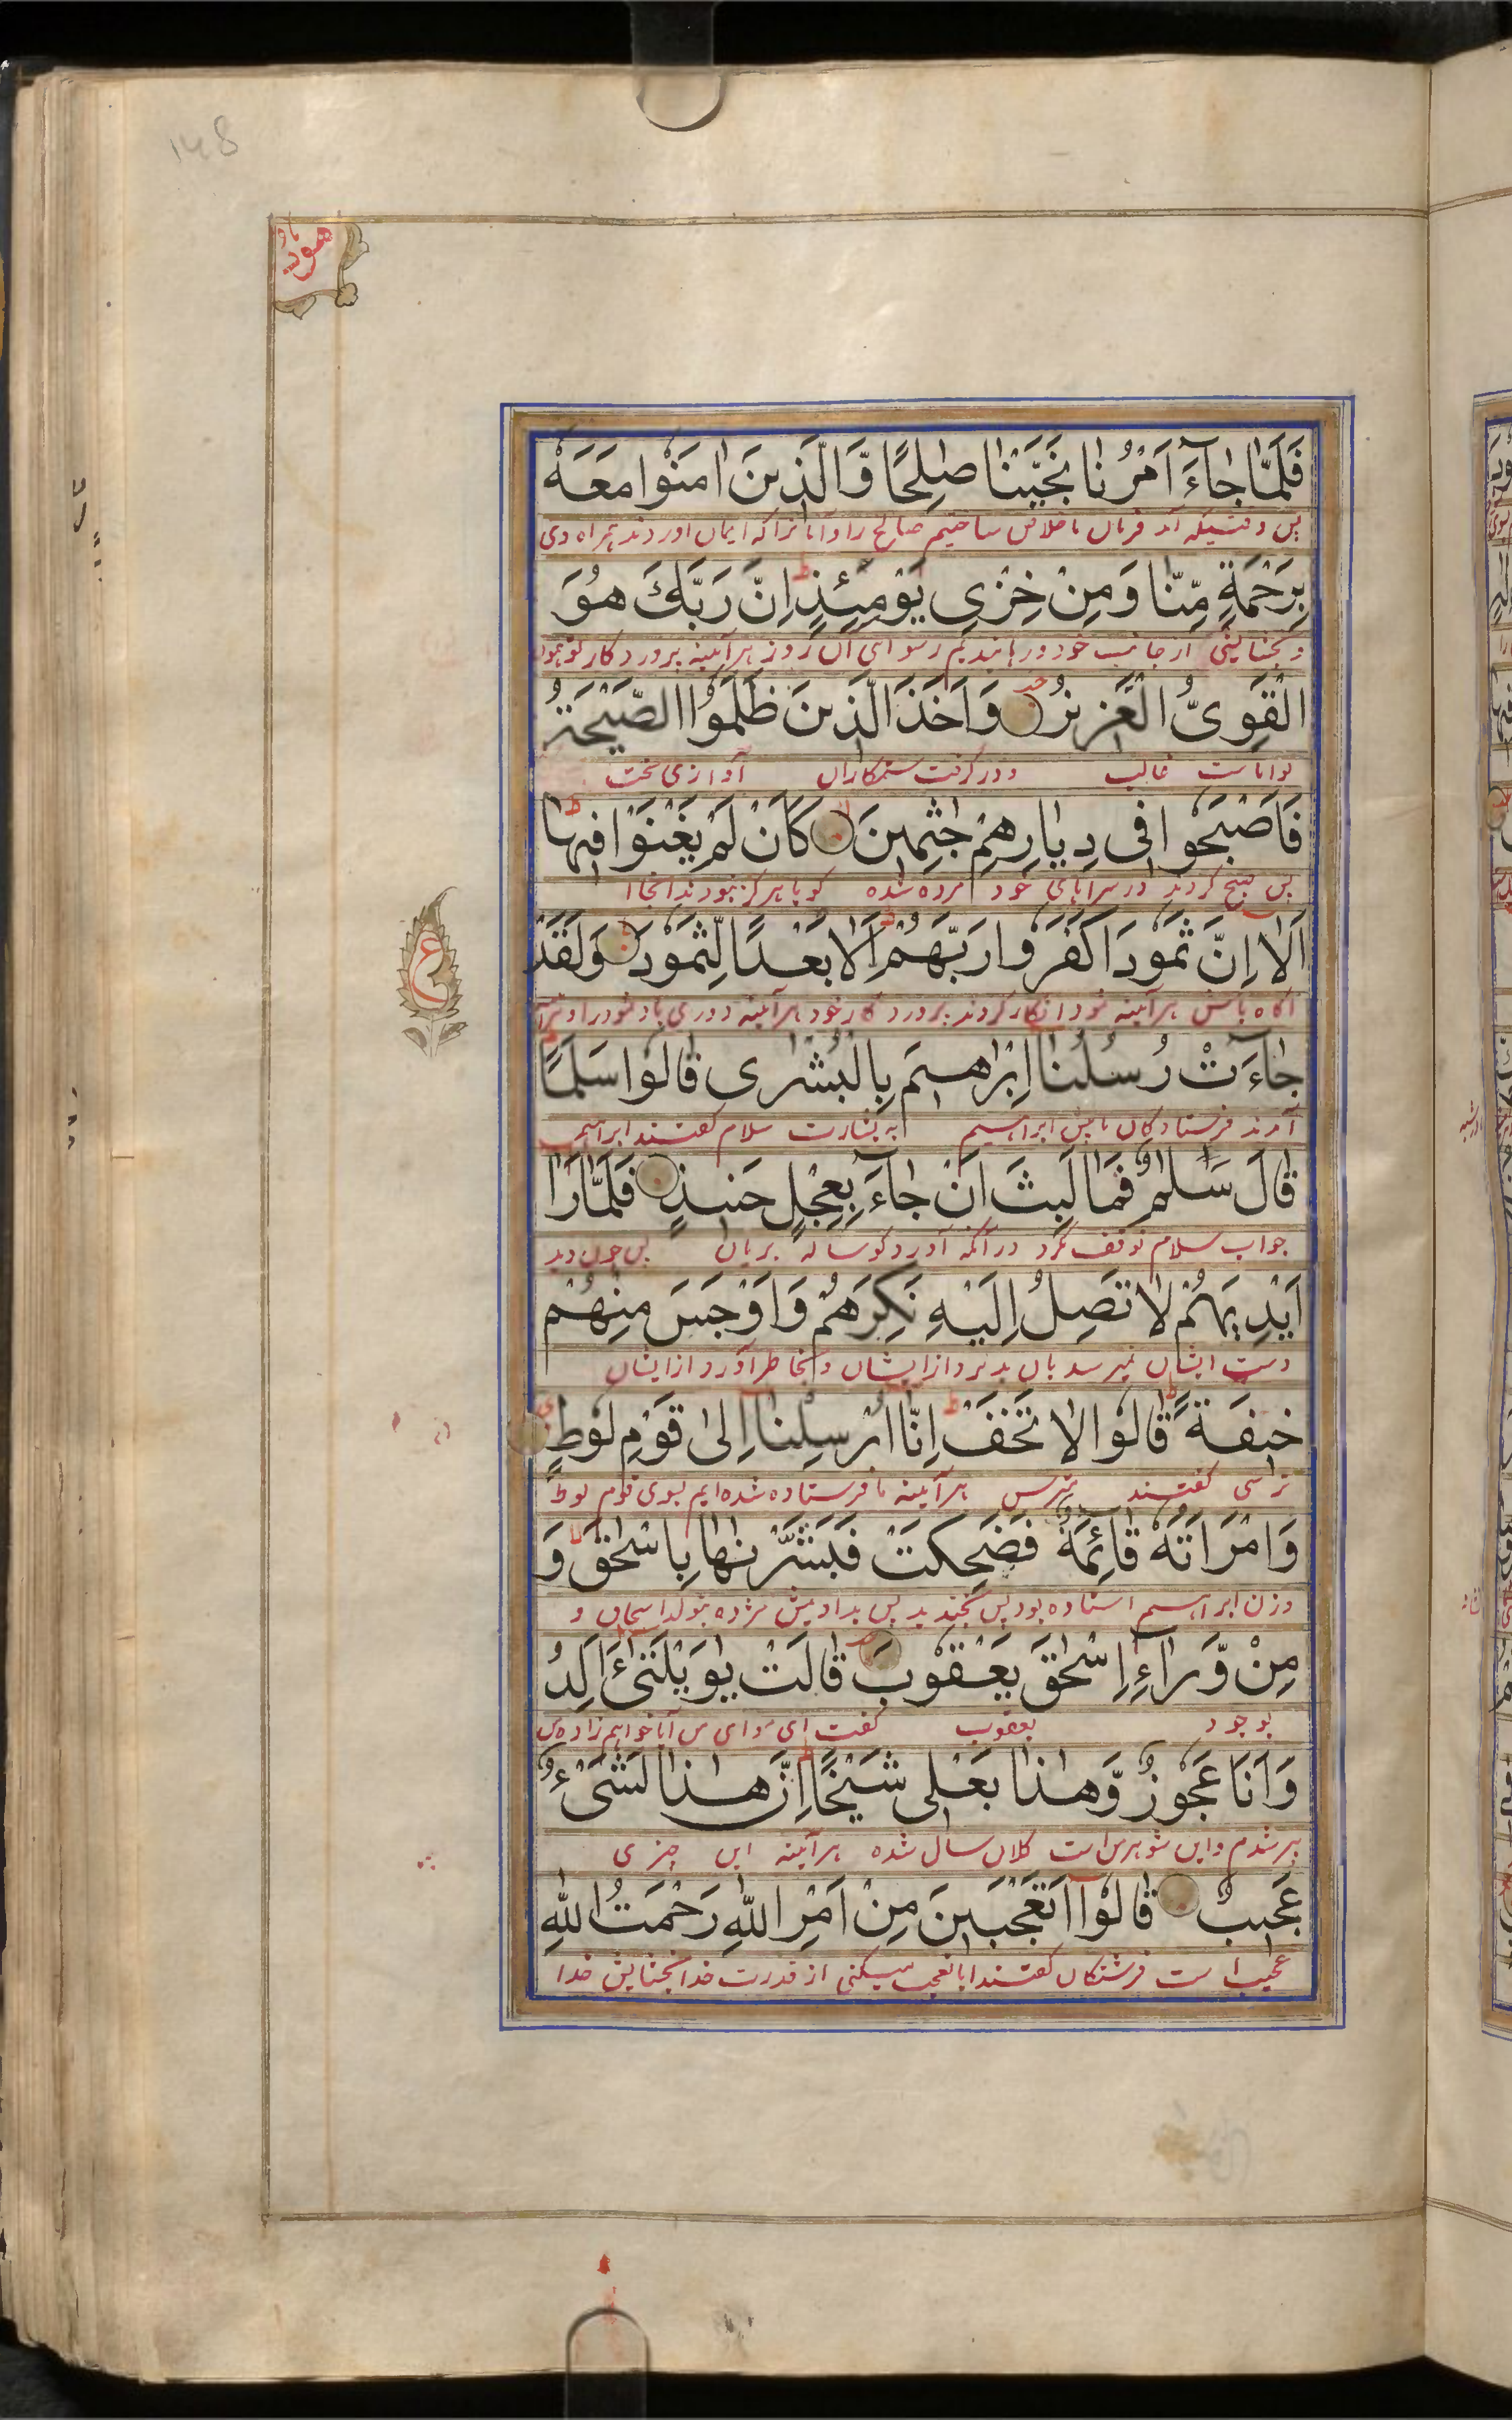 148
هود
فَلَمَّا جَآءَ اَمْرُنَا نَجَّيْنَا صٰلِحًا وَّالَّذِينَ اٰمَنُوا مَعَهٗ
پس وقتیکه آمد فرمان ما خلاص ساختیم صالح را و آنانرا که ایمان اوردند همراه وی
بِرَحْمَةٍ مِّنَّا وَمِنْ خِزْىِ يَوْمِئِذٍ ط اِنَّ رَبَّكَ هُوَ
و بخشایشی از جانب خود و رهانیدیم رسوایی آن روز هرآئینه پروردکار تو همون
الْقَوِىُّ الْعَزِيزُ وَاَخَذَ الَّذِينَ ظَلَمُوا الصَّيْحَةُ
توانا ست غالب و در گرفت ستمکاران آوازی سخت
فَاَصْبَحُوا فِى دِيَارِهِمْ جٰثِمِينَ لا كَاَنْ لَّمْ يَغْنَوْا فِيهَا ط
پس صبح کردند در سراهای خود مرده شده کویا هرکز نبودند آنجا
اَلَآ اِنَّ ثَمُودَا كَفَرُوا رَبَّهُمْ ط اَلَا بُعْدًا لِّثَمُودَ وَلَقَدْ
آکاه باش هرآئینه ثمود انکار کردند پروردکار خود هرآئینه دوری باد ثمود را و
ع
جَآءَتْ رُسُلُنَا اِبْرٰهِيمَ بِالْبُشْرٰى قَالُوا سَلٰمًا
آمدند فرستادکان ما پیش ابراهیم به بشارت سلام کفتند ابراهیم
قَالَ سَلٰمٌ فَمَا لَبِثَ اَنْ جَآءَ بِعِجْلٍ حَنِيذٍ فَلَمَّا رَاٰ
جواب سلام توقف نکرد در آنکه آورد کوساله بریان پس چون دید
اَيْدِيَهُمْ لَا تَصِلُ اِلَيْهِ نَكِرَهُمْ وَاَوْجَسَ مِنْهُمْ
دست ایشان نمیرسد بان بد برد از ایشان و بخاطر آورد از ایشان
خِيفَةً ط قَالُوا لَا تَخَفْ اِنَّا اُرْسِلْنَا اِلٰى قَوْمِ لُوطٍ
ترسی کفتند مترس هرآئینه ما فرستاده شده ایم بسوی قوم لوط
وَامْرَاَتُهٗ قَآئِمَةٌ فَضَحِكَتْ فَبَشَّرْنٰهَا بِاِسْحٰقَ وَ
وزن ابراهیم استاده بود پس بخندید پس بدادیمش مژده بتولد اسحاق و
مِنْ وَّرَآءِ اِسْحٰقَ يَعْقُوبَ قَالَتْ يٰوَيْلَتٰىٓ ءَاَلِدُ
بوجود یعقوب کفت ای وای من آیا خواهم زاد
وَاَنَا عَجُوزٌ وَّهٰذَا بَعْلِى شَيْخًا ط اِنَّ هٰذَا لَشَىْءٌ
پیر شدم و این شوهر من است کلان سال شده هرآئینه این چیزی
عَجِيبٌ قَالُوٓا اَتَعْجَبِينَ مِنْ اَمْرِ اللّٰهِ رَحْمَتُ اللّٰهِ
عجیب است فرشتکان کفتند ایا تعجب میکنی از قدرت خدا بخشایش خدا